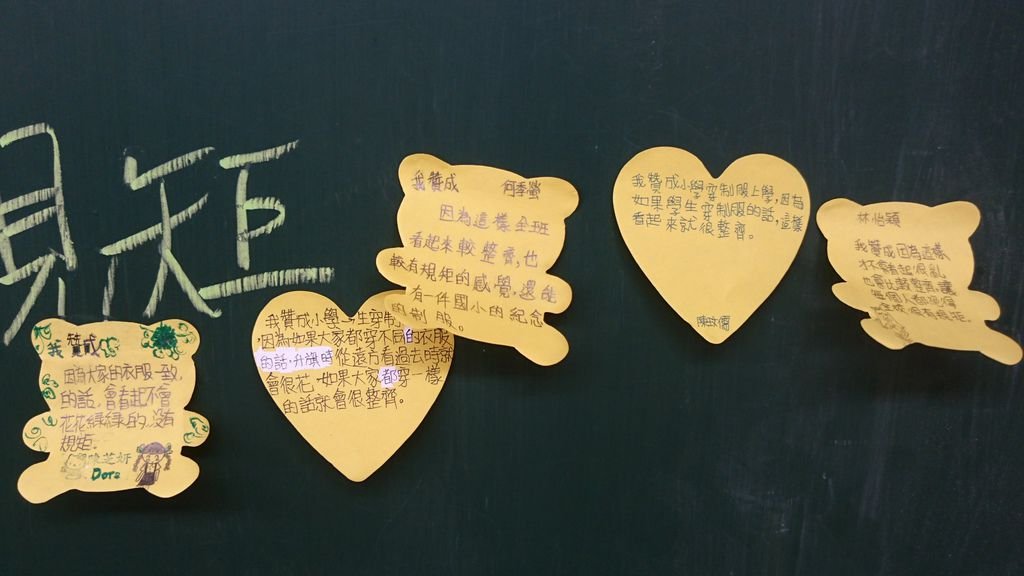 規矩
我贊成
因為大家的衣服一致,
的話,會看起不會
花花綠綠的,沒有
規矩.
Dora
我贊成小學生穿制
因為如果大家都穿不同的衣服
的話,升旗時從遠方看過去時就
會很花,如果大家都穿一樣
的話就會很整齊。
我贊成 何季螢
因為這樣全班
看起來較整齊,也
較有規矩的感覺,還能
有一件國小的紀念
的制服。
我贊成小學穿制服上學,因為
如果學生穿制服的話,這樣
看起來就很整齊。
林怡穎
我贊成因為這樣
才不會看起很亂